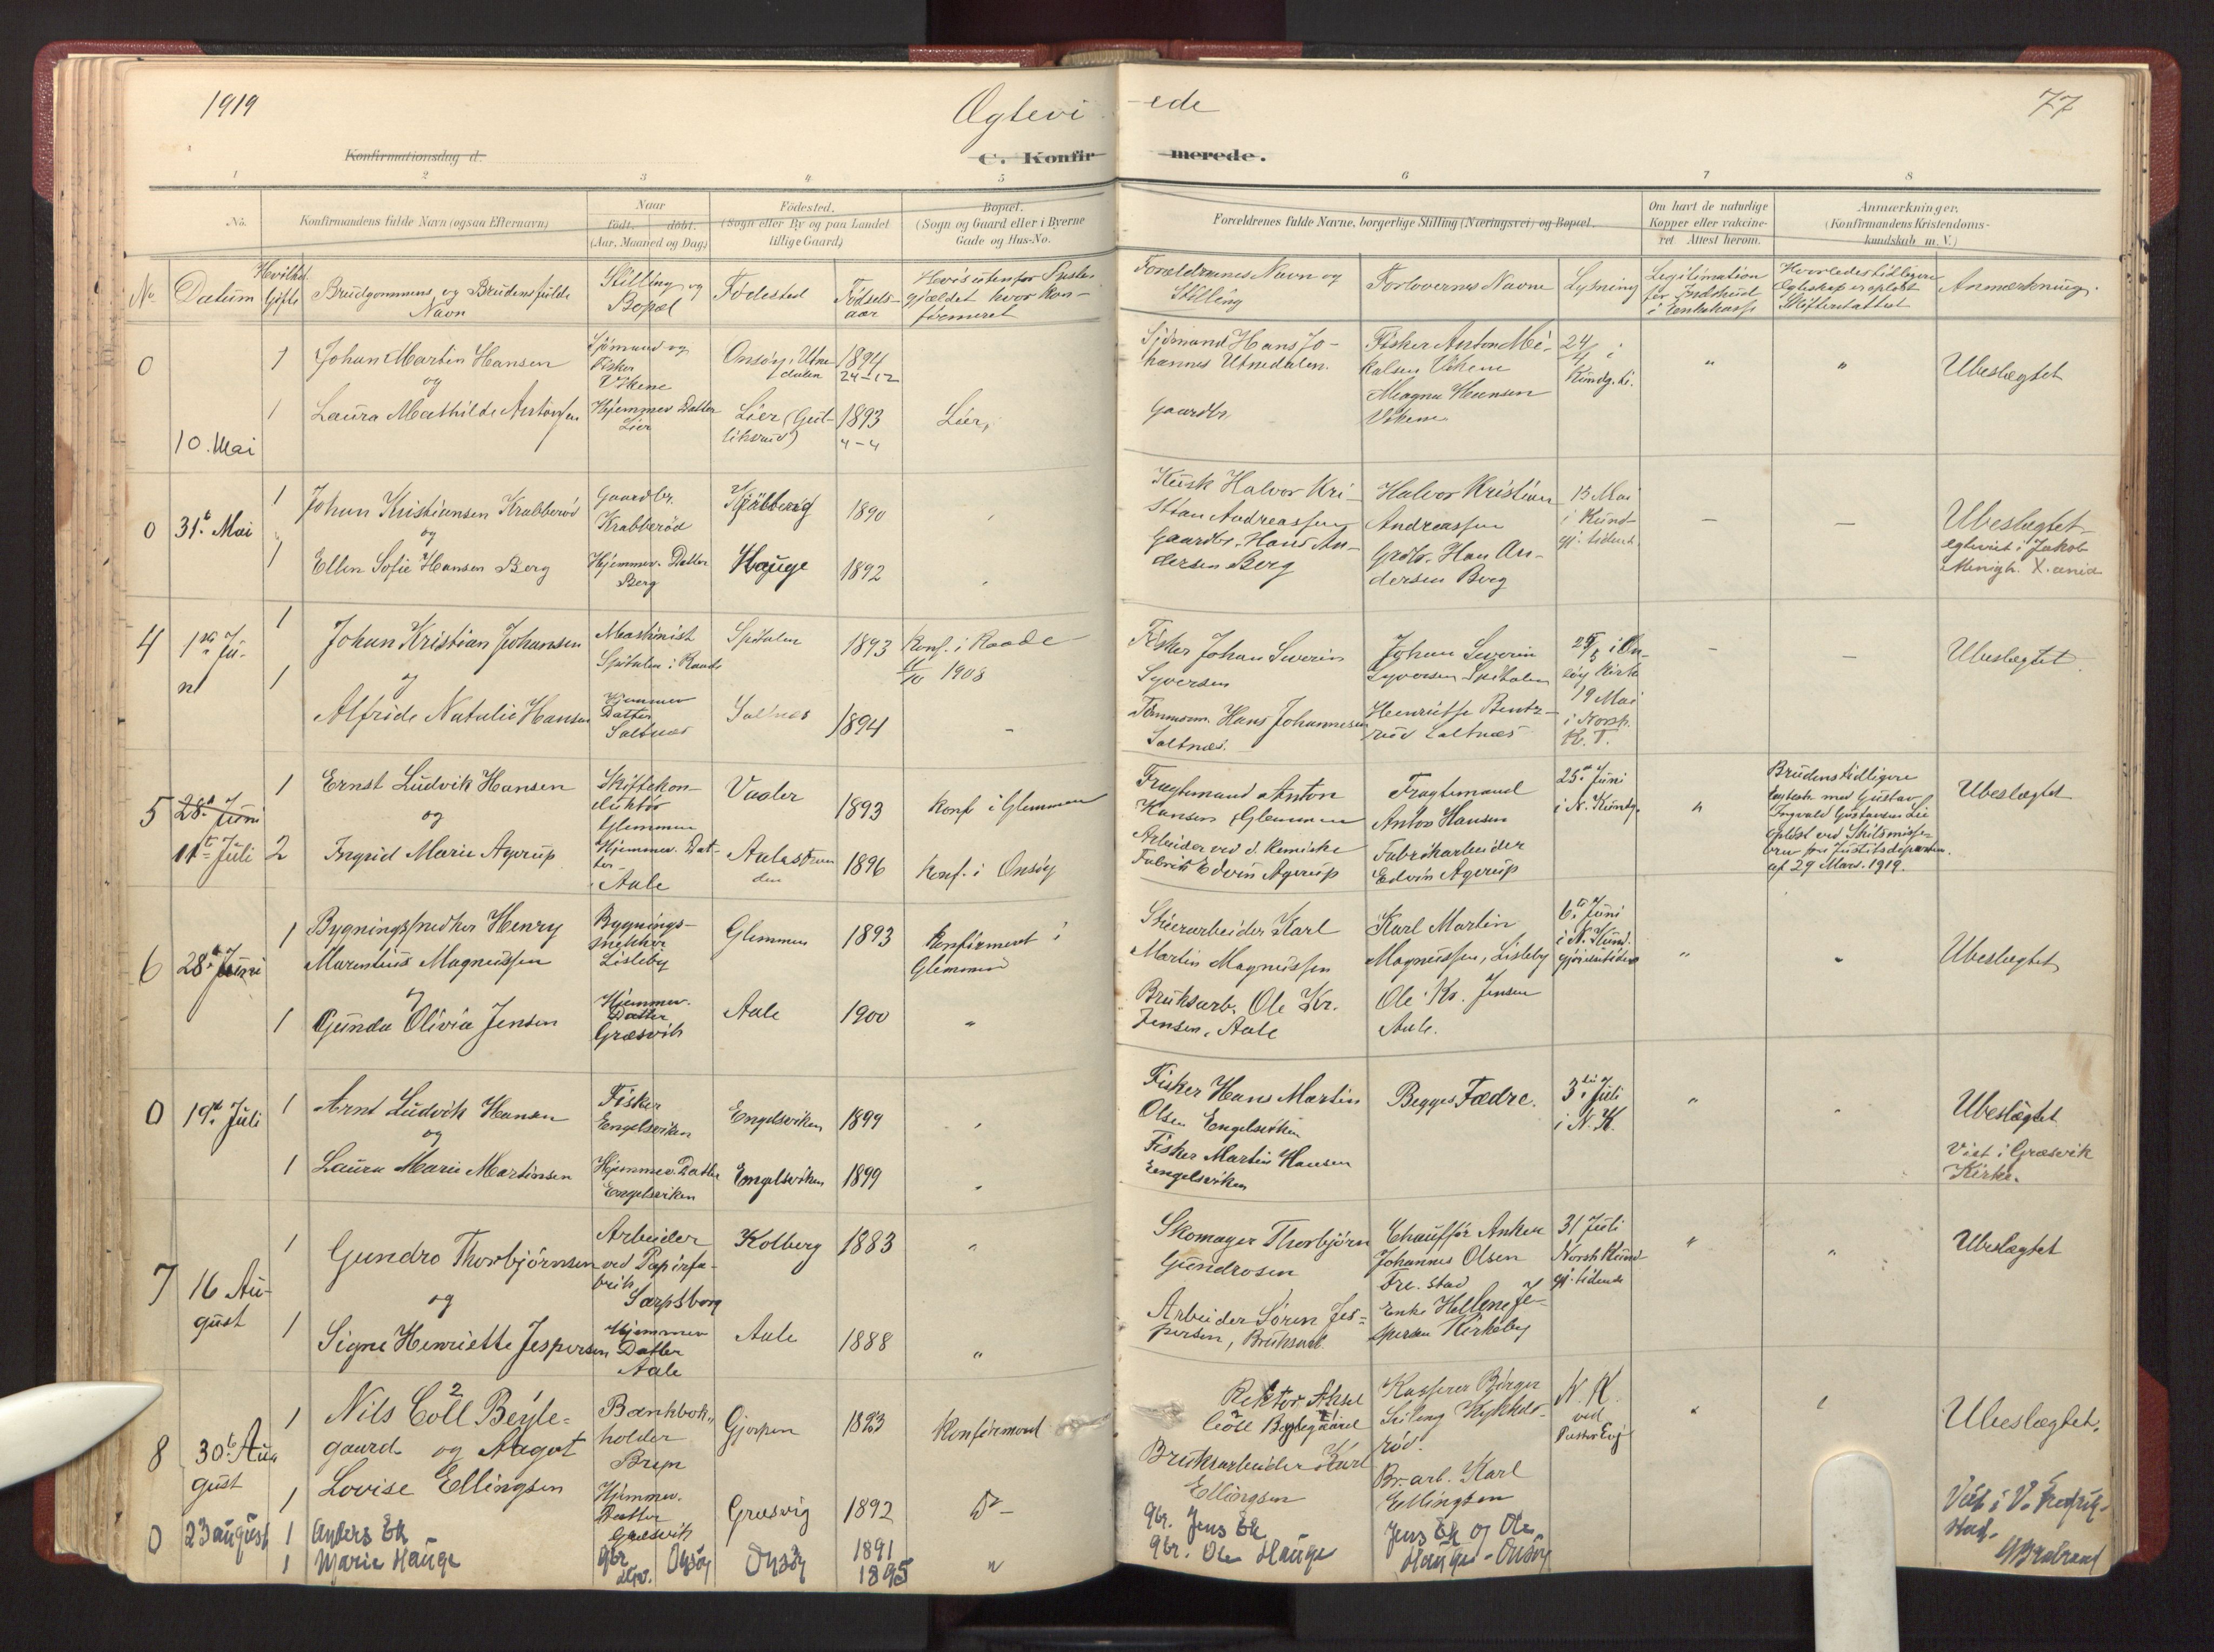 1919
Ægtevi -ede
77
Konfirmationsdag d.
C. Konfir- merede.
1 2 3 4 5 6 7 8
No. Konfirmandens fulde Navn (ogsaa Efternavn) Naar født. døbt. (Aar, Maaned og Dag) Fødested. (Sogn eller By og paa Landet tillige Gaard) Bopæl. (Sogn og Gaard eller i Byerne Gade og Hus-No.
Forældrenes fulde Navne, borgerlige Stilling (Næringsvei) og Bopæl. Om havt de naturlige Kopper eller vakcineret. Attest herom. Anmærkninger. (Konfirmandens Kristendomskundskab m. V.)
No. Datum Hvilket Gifte Brudgommens og Brudens fulde Navn Stilling og Bopæl Fødested Fødselsaar Hvis utenfor Præstegjældet hvor konfirmeret
Forældrenes Navn og Stilling Forlovernes Navne Lysning Legitimation for Indskud i Enkekasse Hvorledes tidligere Ægteskap er opløst Skifteattest Anmærkning.
0 10. Mai
1 Johan Martin Hansen Sjömand og Fisker Vikene Onsøy, Utnedalen 1894 24-12
og
1 Laura Mathilde Antonsen Hjemmev. Datter Lier Lier 1893 4-4 Lier,
Sjömand Hans Johannes Utnedalen. Fisker Anton Mikalsen Vikene 24/4 i Kundg. ti. " " Ubeslægtet
Gaardbr. Magna Hansen Vikene
0 31te Mai
1 Johan Kristiansen Krabberöd Gaardbr. Krabberöd Kjölberg 1890
og
1 Ellen Sofie Hansen Berg Hjemmev. Datter Berg Hauge 1892
Kusk Halvor Kristian Andreassen Halvor Kristian Andreassen 15 Mai i Kundgj. tidend. - - Ubeslægtet
Gaardbr. Hans Andersen Berg Grdbr. Han Andersen Berg egteviet i Jakob Menigh. X.ania
4 1ste Juni
1 Johan Kristian Johansen Maskinist Spitalen i Raade Spitalen 1893 Konf. i Raade 11/10 1908
og
1 Alfride Natalie Hansen Hjemmev Datter Saltnes Saltnes 1894 -
Fisker Johan Severin Syversen Johan Severin Syversen Spitalen 25/5 i Onsöy Kirke - - Ubeslægtet
Tömmerm. Hans Johannesen Saltnæs. Henriette Bentzröd Saltnæs 19 Mai i Norsk. K. T.
5 28de Juni 11te Juli
1 Ernst Ludvik Hansen Skiftekonduktör Glemmen Vaaler 1893 Konf i Glemmen
og
2 Ingrid Marie Agerup Hjemmev. Datter Aale Aalestranden 1896 Konf. i Onsöy
Fragtemand Anton Hansen Glemmen Fragtemand Anton Hansen 25de Juni i N. Kundg. " Ubeslægtet
Arbeider ved d. Kemiske Fabrik Edvin Agerup Fabrikarbeider Edvin Agerup
Brudens tidligere Egtesk. med Gustav Ingvald Gustavsen Lie opløst ved Skilsmisse
af 29 Mars. 1919.
6 28de Juni
1 Bygningssnedker Henry Marentius Magnussen Bygningssnekker Lisleby Glemmen 1893 Konfirmeret i Glemmen
og
1 Gunda Olivia Jensen Hjemmev. Datter Græsvik Aale 1900 "
Karl Martin Magnussen Karl Martin Magnussen, Lisleby 6te Juni i N. Kundgjörelsetidende " " Ubeslægtet
Bruksarb. Ole Kr. Jensen, Aale Ole Kr. Jensen Aale.
0 19de Juli
1 Arnt Ludvik Hansen Fisker Engelsviken Engelsviken 1899
og
1 Laura Marie Martinsen Hjemmev. Datter Engelsviken Engelsviken 1899
Fisker Hans Martin Olsen Engelsviken Begges Fædre. 3die Juli i N.K. " Ubeslægtet
Fisker Martin Hansen Engelsviken Viet i Græsvik Kirke.
7 16 August
1 Gundro Thorbjörnsen Arbeider ved Papirfabrik Sarpsborg Kolberg 1883 "
og
1 Signe Henriette Jespersen Hjemmev Datter Aale Aale 1888 "
Skomager Thorbjörn Gundrosen Chauffør Anker Johannes Olsen Fre.stad 31 Juli Norsk Kundgj. tidende " " Ubeslægtet
Arbeider Sören Jespersen, Bruksarb. Enke Helene Jespersen Kirkeby
8 30te August
1 Nils Cöll Bøylegaard Bankbokholder Gjerpen 1893 Konfirmerad
og
1 Aagot Lovise Ellingsen Hjemmev. Datter Græsvik Græsvig 1892 Do -
Rektor Aksel Cöll Kasserer Birger N.K. ved " Ubeslægtet,
Bruksarbeider Karl Ellingsen Br.arb. Karl Ellingsen
0 23 august
1 Anders Ek Gbr Onsöy Onsöy 1891
1 Marie Hauge 1895 "
Gbr. Jens Ek Jens Ek og Ole Hauge - Onsöy Viet i V. Fredrikstad.
Gbr. Ole Hauge